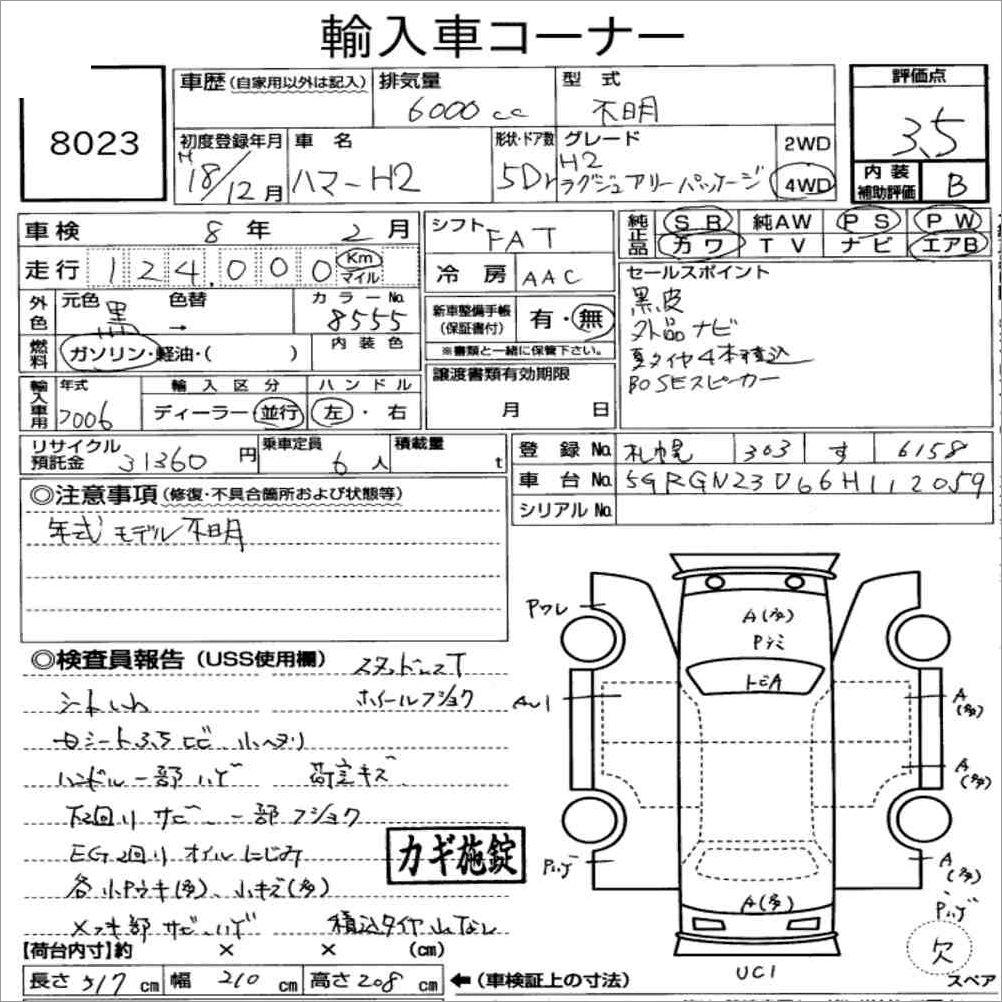 輸入車コーナー
8023
車歴(自家用以外は記入) 排気量 6000cc 型式 不明
評価点 3.5
初度登録年月 H18/12月 車名 ハマーH2 形状・ドア数 5Dr グレード H2 ラグジュアリーパッケージ 2WD 4WD
内装補助評価 B
車検 8年 2月
走行 124,000 Km マイル
シフト FAT
冷房 AAC
純正品 SR 純AW PS PW
カワ TV ナビ エアB
外色 元色 黒 色替 → カラーNo. 8555
燃料 ガソリン・軽油・( ) 内装色
新車整備手帳(保証書付) 有・無
※書類と一緒に保管下さい。
セールスポイント
黒皮
外品ナビ
夏タイヤ4本積込
BOSEスピーカー
輸入車用 年式 2006 輸入区分 ディーラー・並行 ハンドル 左・右
譲渡書類有効期限
月 日
リサイクル預託金 31360円 乗車定員 6人 積載量 t
登録No. 札幌 303 す 6158
車台No. 5GRGN23U66H112059
シリアルNo.
◎注意事項(修復・不具合箇所および状態等)
年式モデル不明
◎検査員報告(USS使用欄) スタッドレスT
シートしわ ホイールフショク
ハンドル一部ハゲ 荷室キズ
下回りサビ、一部フショク
EG回りオイルにじみ
各小Pウキ(多)、小キズ(多)
メッキ部サビハゲ 積込タイヤ山なし
カギ施錠
【荷台内寸】約 × × (cm)
長さ 517cm 幅 210cm 高さ 208cm ←(車検証上の寸法)
A(多)
トビA
AU1
A(多)
A(多)
Pハゲ
A(多)
Pハゲ
A(多)
欠
スペア
UC1